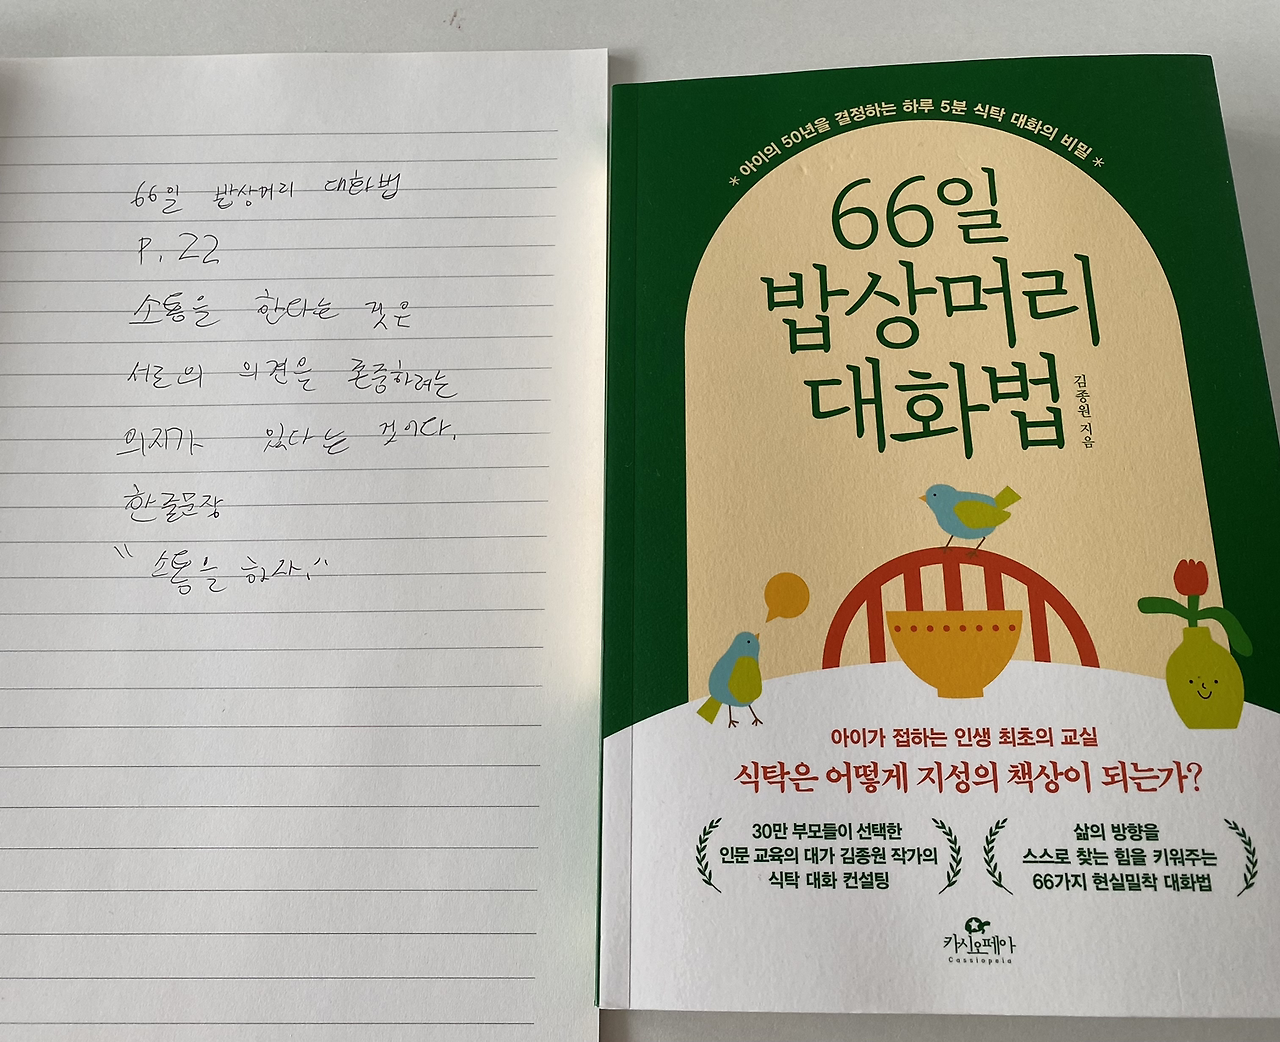 66일 밥상머리 대화법
P. 22
소통을 한다는 것은
서로의 의견을 존중하려는
의지가 있다는 것이다.
한글문장
"소통을 하자."
*아이의 50년을 결정하는 하루 5분 식탁 대화의 비밀*
66일
밥상머리
대화법
김종원 지음
아이가 접하는 인생 최초의 교실
식탁은 어떻게 지성의 책상이 되는가?
30만 부모들이 선택한
인문 교육의 대가 김종원 작가의
식탁 대화 컨설팅
삶의 방향을
스스로 찾는 힘을 키워주는
66가지 현실밀착 대화법
카시오페아
Cassiopeia